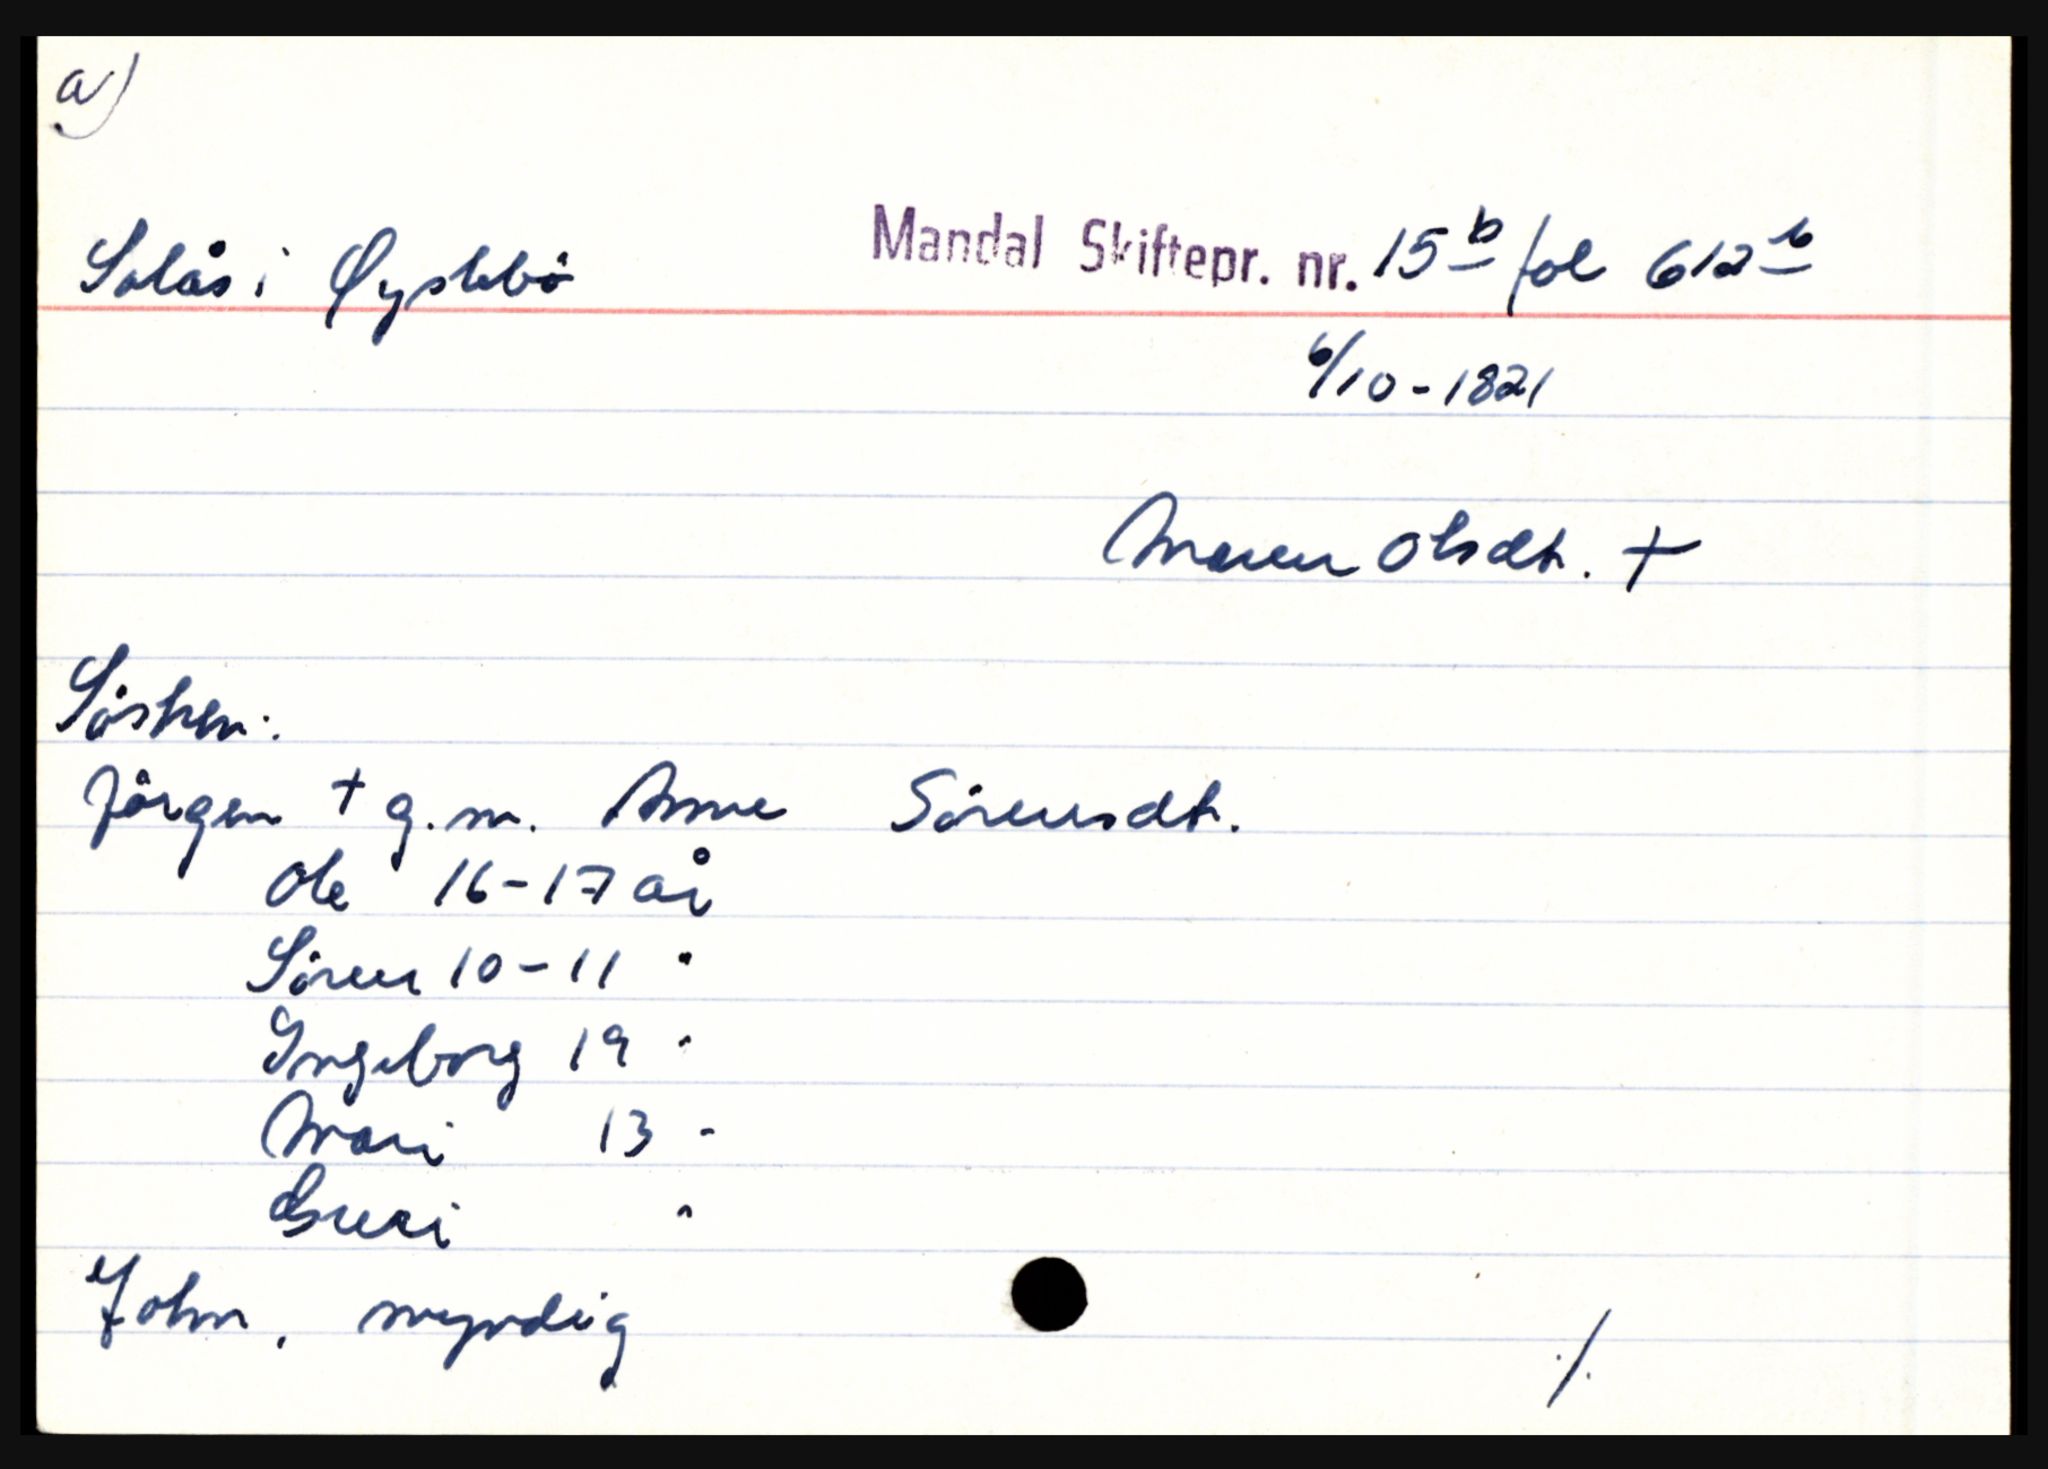 a)
Solås i Øyslebö Mandal Skiftepr. nr. 15 b fol 612 b
6/10 - 1821
Maren Olsdt. +
Sösken:
Jörgen + g. m. Anne Sörensdt.
Ole 16-17 år
Sören 10-11 "
Ingeborg 19 "
Mari 13 "
Guri "
John, myndig
./.